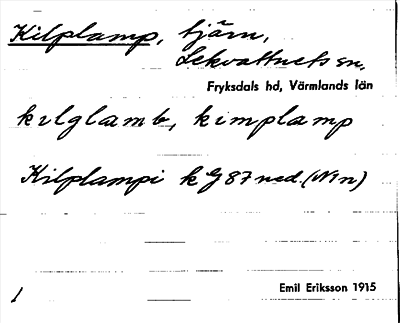 Kilplamp, tjärn,
Lekvattnets sn.
Fryksdals hd, Värmlands län
kilglamb, kimplamp
Kilplampi k G 87 ned. (N1n)
Emil Eriksson 1915
1